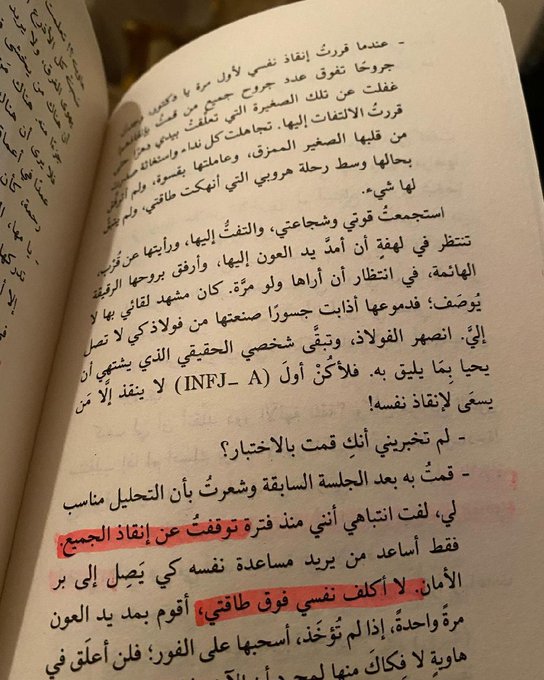 - عندما قررتُ إنقاذ نفسي لأول مرة يا دكتور،
جروحًا تفوق عدد جروح جميع من قمتُ
غفلت عن تلك الصغيرة التي تعلّقت بيدي
قررتُ الالتفات إليها. تجاهلت كل نداء واستغاثة
من قلبها الصغير الممزق، وعاملتها بقسوة، ولم
بحالها وسط رحلة هروبي التي أنهكت طاقتي، ولم
لها شيء.
استجمعتُ قوتي وشجاعتي، والتفتُّ إليها، ورأيتها عن قُرْب،
تنتظر في لهفةٍ أن أمدَّ يد العون إليها، وأرفق بروحها الرقيقة
الهائمة، في انتظار أن أراها ولو مرَّة. كان مشهد لقائي بها لا
يُوصَف؛ فدموعها أذابت جسورًا صنعتها من فولاذ كي لا تصل
إليَّ. انصهر الفولاذ، وتبقَّى شخصي الحقيقي الذي يشتهي أن
يحيا بِمَا يليق به. فلأكُنْ أولَ (INFJ- A) لا ينقذ إلَّا مَن
يسعَى لإنقاذ نفسه!
- لم تخبريني أنكِ قمت بالاختبار؟
- قمتُ به بعد الجلسة السابقة وشعرتُ بأن التحليل مناسب
لي، لفت انتباهي أنني منذ فترة توقفتُ عن إنقاذ الجميع.
فقط أساعد من يريد مساعدة نفسه كي يَصِل إلى بر
الأمان. لا أكلف نفسي فوق طاقتي، أقوم بمد يد العون
مرةً واحدةً، إذا لم تُؤخَذ، أسحبها على الفور؛ فلن أعلَق في
هاويةٍ لا فِكاكَ منها لمجرد أن